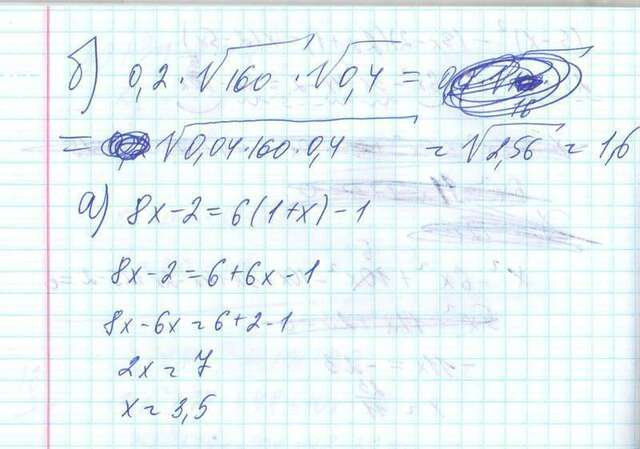 б) 0,2 · √160 · √0,4 =
= √0,04·160·0,4 = √2,56 = 1,6
а) 8x-2=6(1+x)-1
8x-2=6+6x-1
8x-6x=6+2-1
2x=7
x=3,5